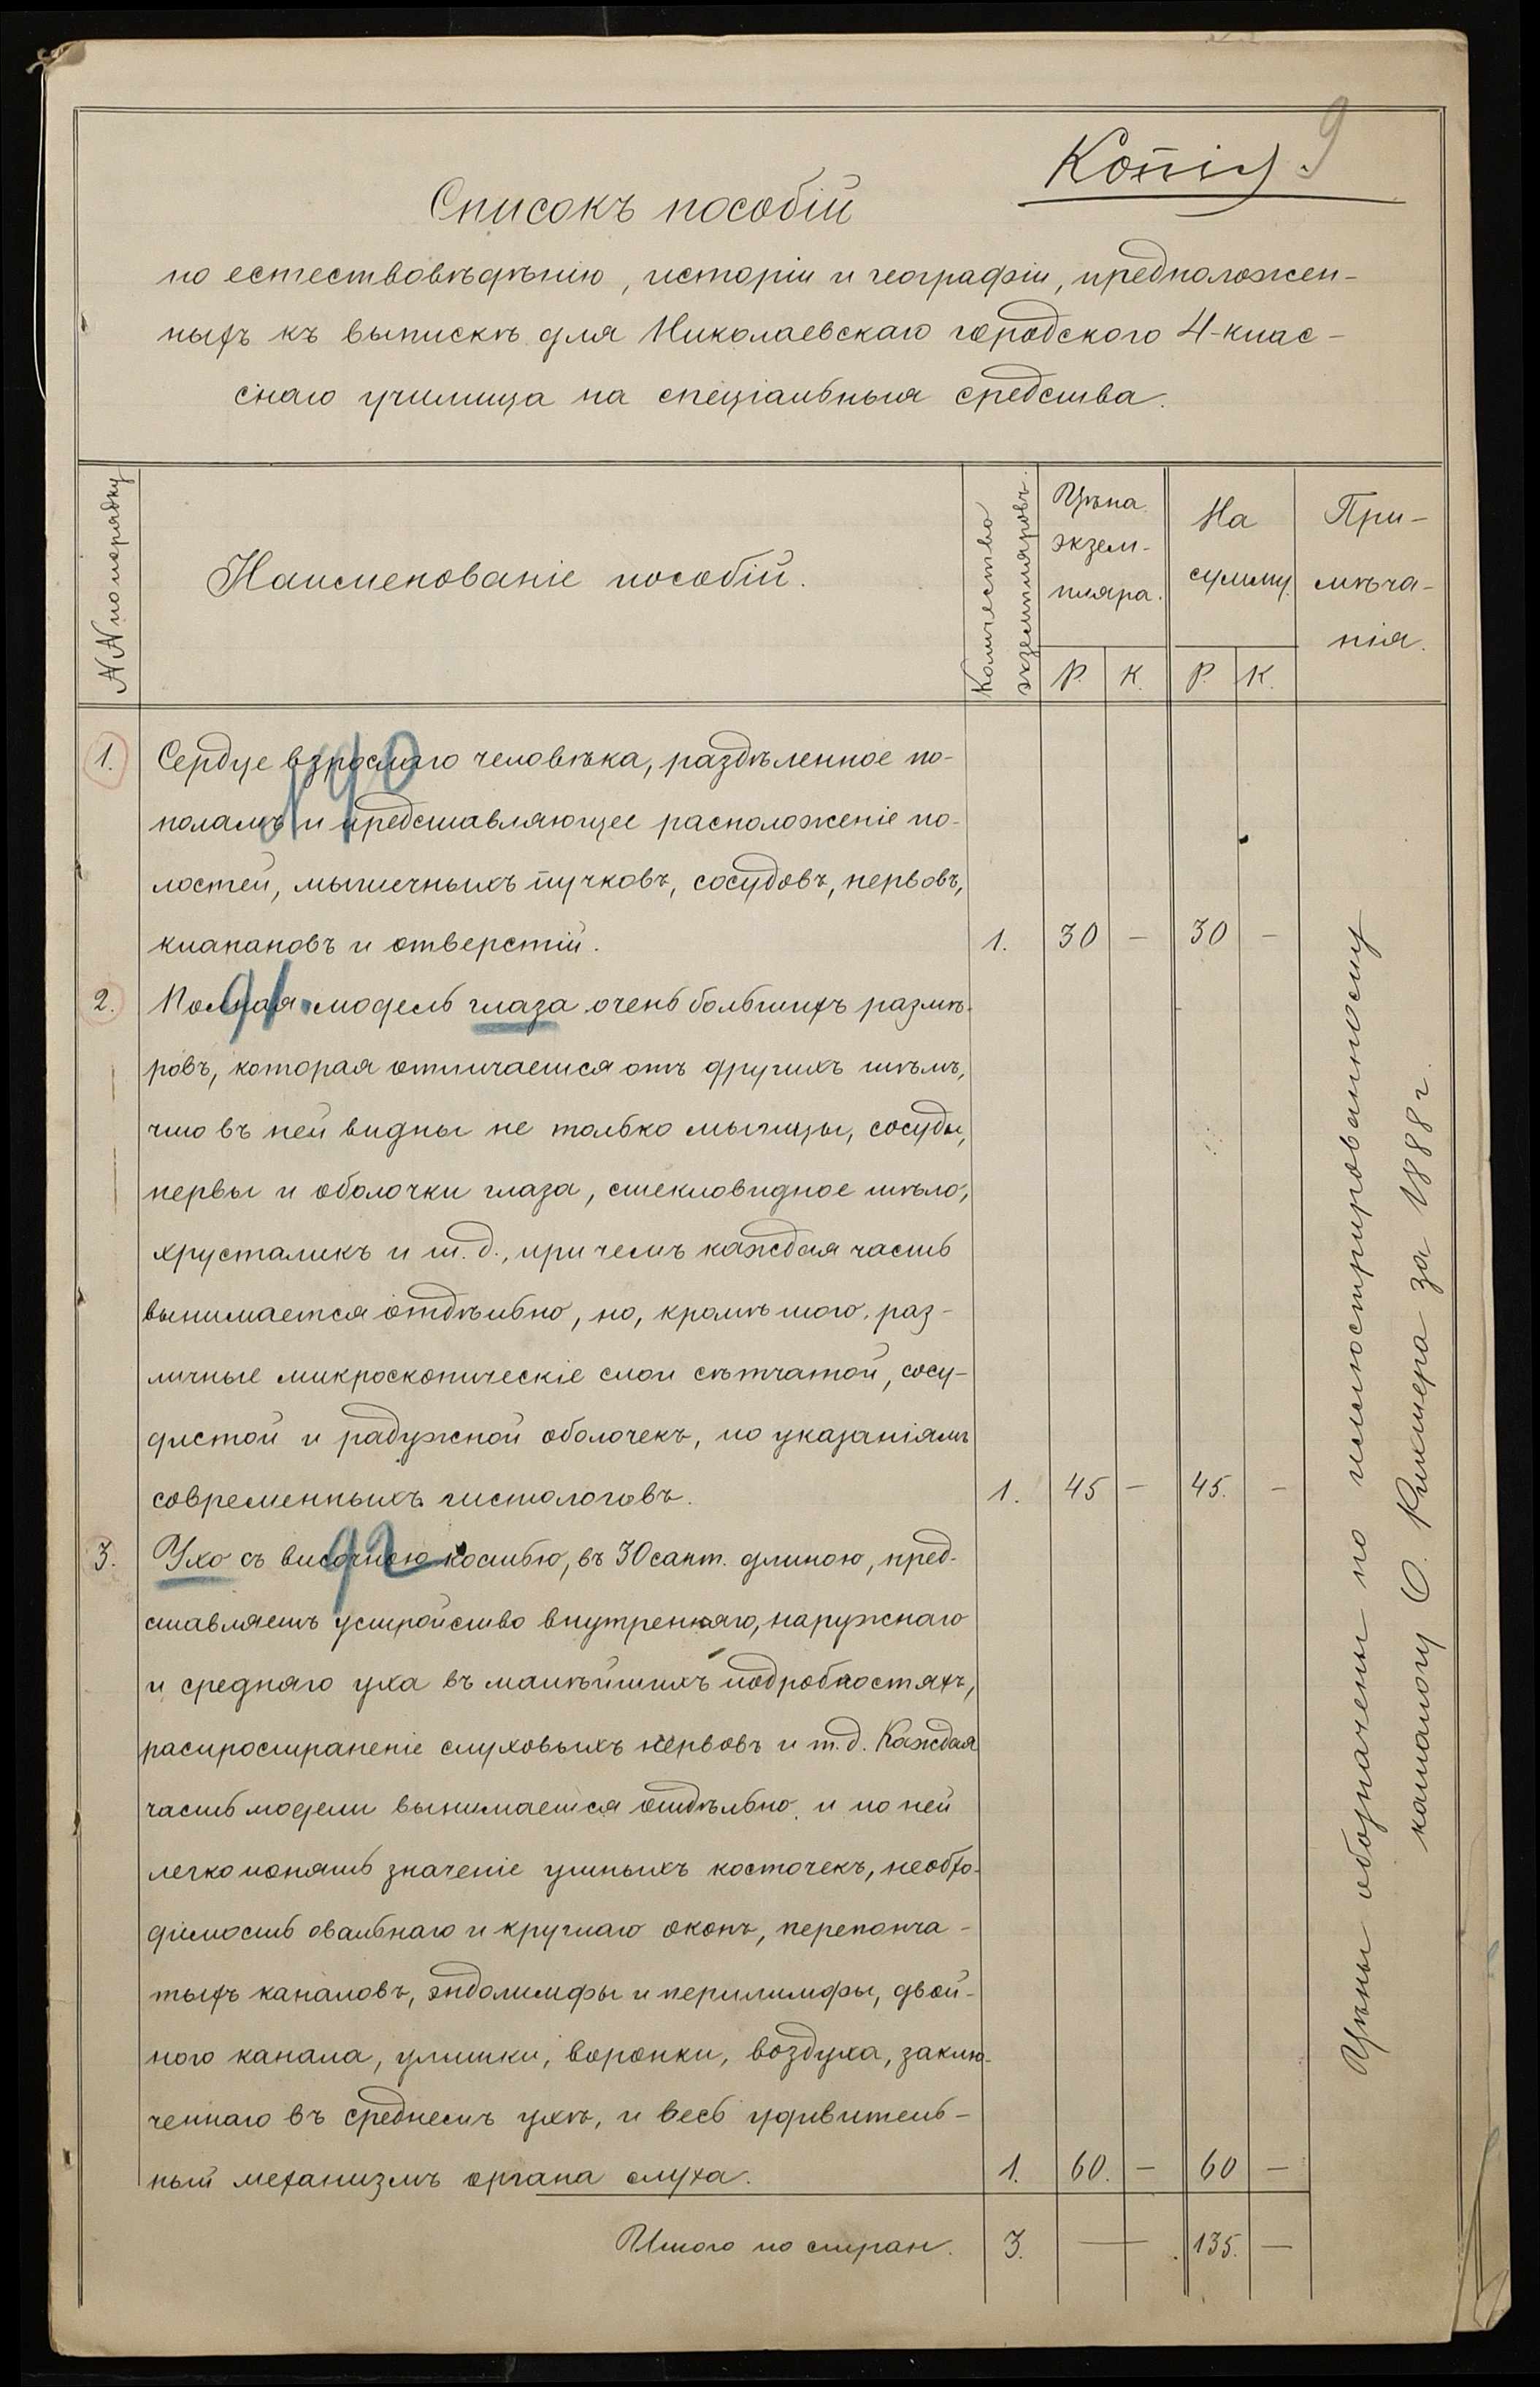 Копія
9
Списокъ пособій
по естествовѣдѣнію, исторіи и географіи, предположен-
ныхъ къ выпискѣ для Николаевскаго городского 4-клас-
снаго училища на спеціальныя средства.
NN по порядку
Наименованіе пособій.
Количество экземпляровъ.
Цѣна экзем-пляра.
На сумму.
При-мѣча-нія.
Р. К. Р. К.
1. Сердце взрослаго человѣка, раздѣленное по-
190
поламъ и представляющее расположеніе по-
лостей, мышечныхъ пучковъ, сосудовъ, нервовъ,
клапановъ и отверстій. 1. 30 — 30 —
2. Полная модель глаза очень большихъ размѣ-
91
ровъ, которая отличается отъ другихъ тѣмъ,
что въ ней видны не только мышцы, сосуды,
нервы и оболочки глаза, стекловидное тѣло,
хрусталикъ и т.д., при чемъ каждая часть
вынимается отдѣльно, но, кромѣ того, раз-
личные микроскопическіе слои сѣтчатой, сосу-
дистой и радужной оболочекъ, по указаніямъ
современныхъ гистологовъ. 1. 45 — 45. —
3. Ухо съ височною костью, въ 30 сант. длиною, пред-
92
ставляетъ устройство внутренняго, наружнаго
и средняго уха въ малѣйшихъ подробностяхъ,
распространеніе слуховыхъ нервовъ и т.д. Каждая
часть модели вынимается отдѣльно и по ней
легко понять значеніе ушныхъ косточекъ, необхо-
димость овальнаго и круглаго оконъ, перепонча-
тыхъ каналовъ, эндолимфы и перилимфы, двой-
ного канала, улитки, воронки, воздуха, заклю-
ченнаго въ среднемъ ухѣ, и весь удивитель-
ный механизмъ органа слуха. 1. 60. — 60 —
Итого по стран. 3. — 135. —
Цѣны обозначены по иллюстрированному
каталогу О. Рихтера за 1888 г.